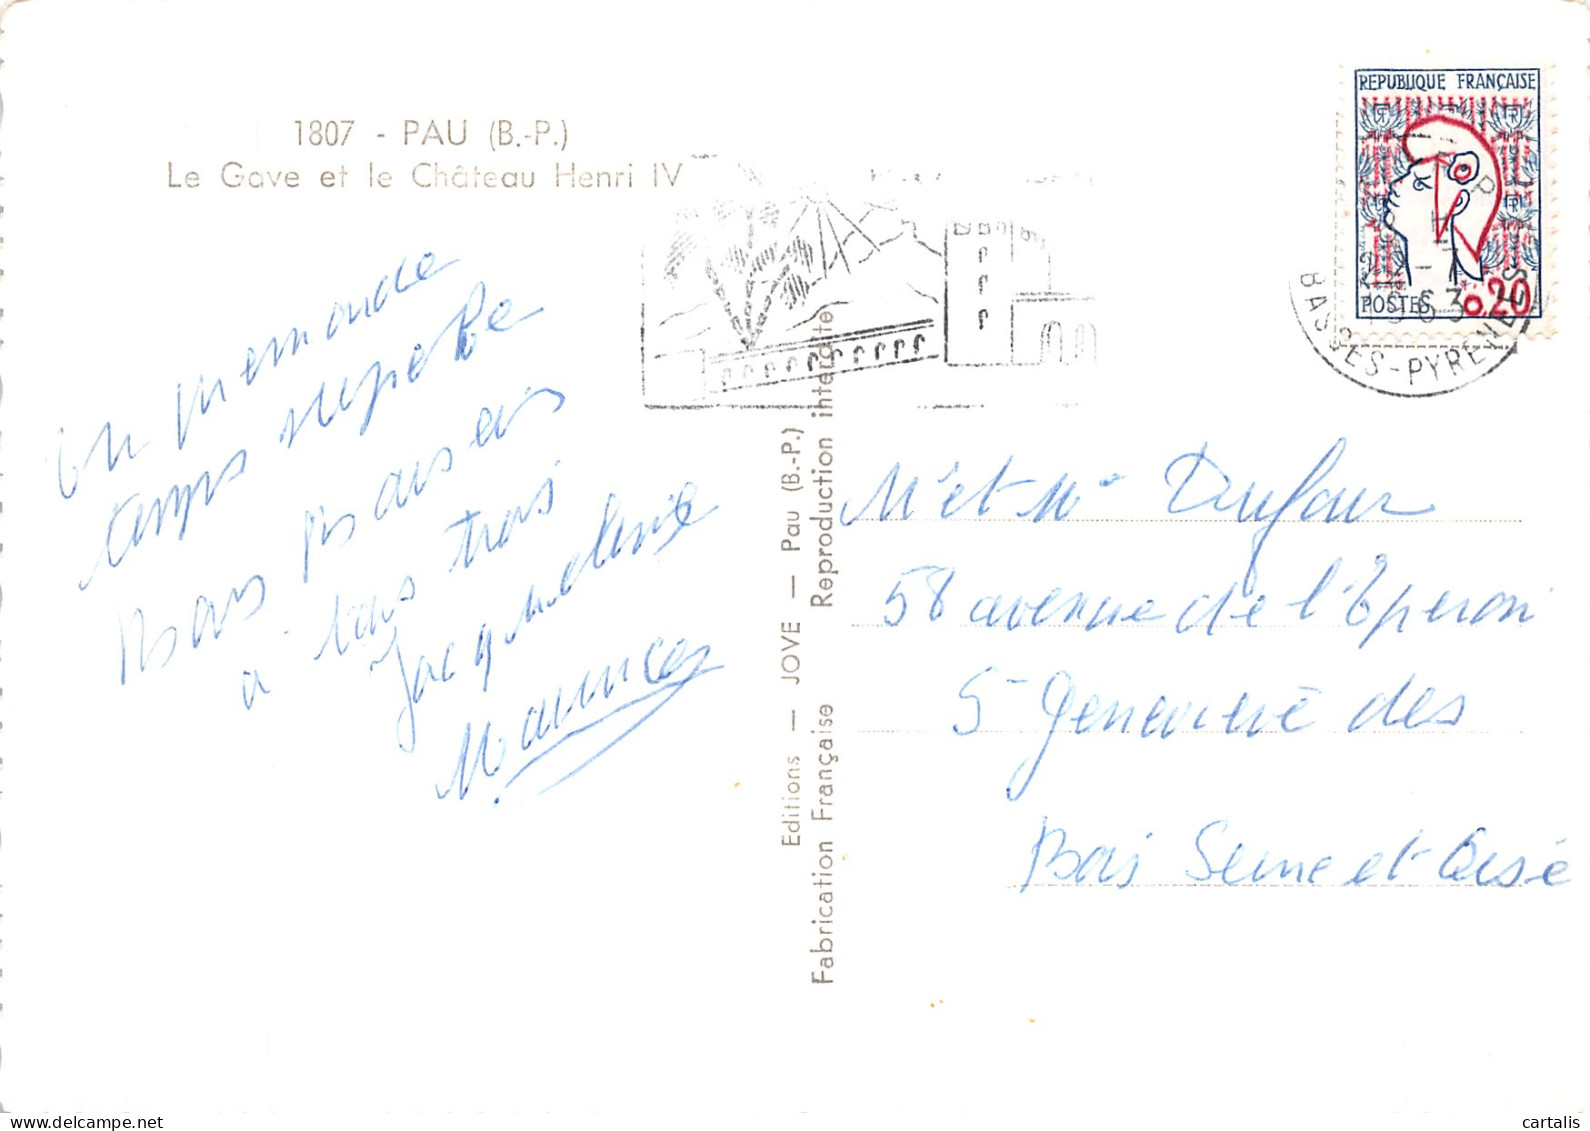 1807 - PAU (B.-P.)
Le Gave et le Château Henri IV
un
temps superbe
Bons baisers
a tous trois
Jacqueline
Maurice
Editions — JOVE — Pau (B.-P.)
Fabrication Française Reproduction interdite
REPUBLIQUE FRANÇAISE
POSTES 0,20
22-7
1963
BASSES-PYRENEES
Mr et Me Dufour
58 avenue de l'Eperon
Ste Genevieve des
Bois Seine et Oise
cartalis
delcampe.net